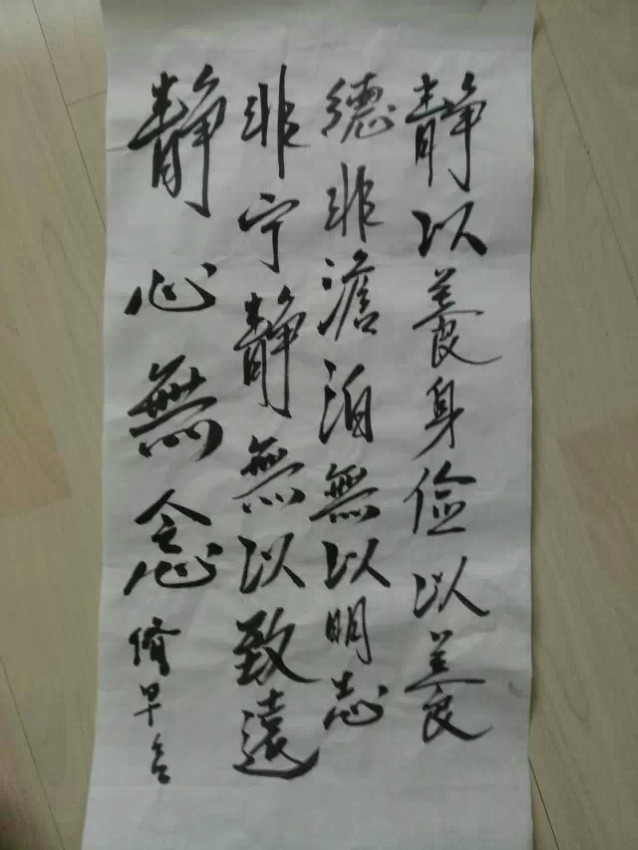 静以養身儉以養
德非澹泊無以明志
非宁靜無以致遠
靜心無念